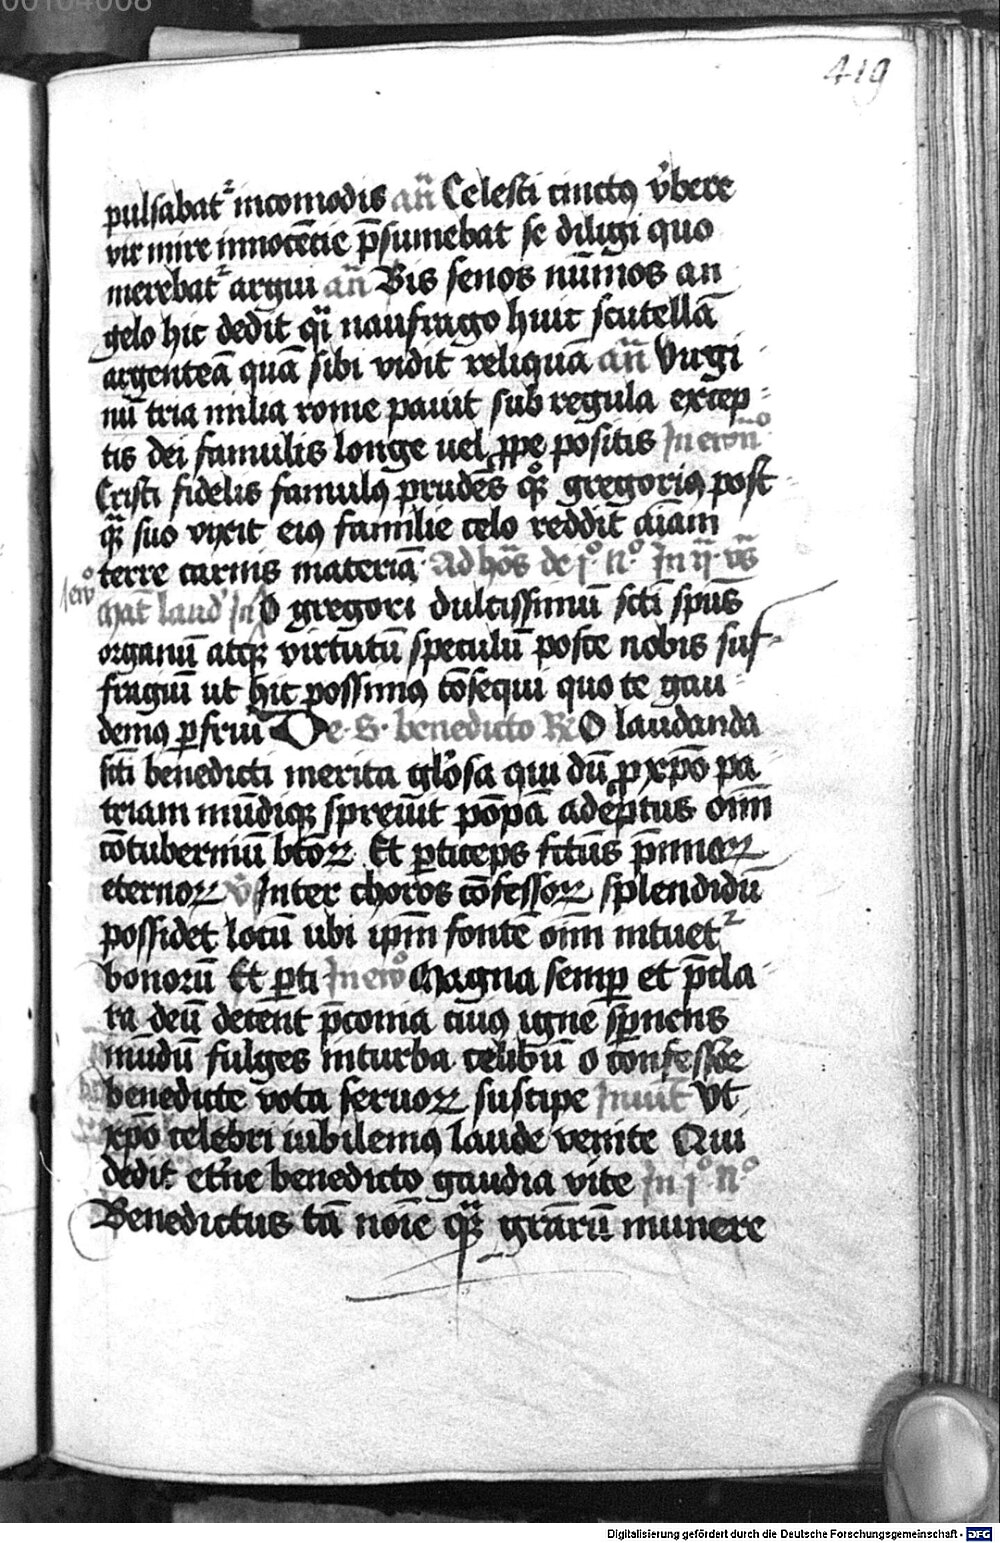 00104008
419
pulsabat᷑ incomodis an̄ Celesti cinctꝰ v̓bere
vir mire innocēcie p̄sumebat se diligi quo
merebat᷑ argui an̄ Bis senos nūmos an
gelo hic dedit qͥ naufrago huic scutellā
argenteā quā sibi vidit reliquā an̄ Virgi
nū tria milia rome pauit sub regula excep-
tis dei famulis longe uel ꝓpe positis In euᵒ
Cristi fidelis famulꝰ prudēs qͦꝫ gregoriꝰ post
qͣꝫ suo vixit eiꝰ familie celo reddit aīam
terre carnis materiā Ad hōs de jᵒ nᵒ In ij vs̄
Mat̄ laud' In O gregori dulcissimū sc̄i spūs
organū atqꝫ virtutū speculū posce nobis suf-
fragiū ut hic possimꝰ cōsequi quo te gau-
demꝰ ꝑfrui De S. benedicto R̄ O laudanda
sc̄i benedicti merita glōsa qui dū ꝓ xp̄o pa
triam mūdiqꝫ spreuit pōpā adeptus oīm
cōtuberniū bt̄oꝝ Et ꝑticeps fctūs p̄mioꝝ
eternoꝝ v̓ Inter choros cōfessoꝝ splendidū
possidet locū ubi ip̄m fontē oīm intuet᷑
bonorū Et ꝑti In euᵒ Magna semꝑ et p̄cla-
ra deū decent p̄conia cuiꝰ igne sp̄nens
mūdū fulges in turba celibū o cōfessor
benedicte vota seruoꝝ suscipe Inuit̄ Vt
xp̄o celebri iubilemꝰ laude venite Qui
dedit et̄ne benedicto gaudia vite In jᵒ nᵒ
Benedictus tā noīe qͣꝫ gr̄arū munere
Digitalisierung gefördert durch die Deutsche Forschungsgemeinschaft - DFG